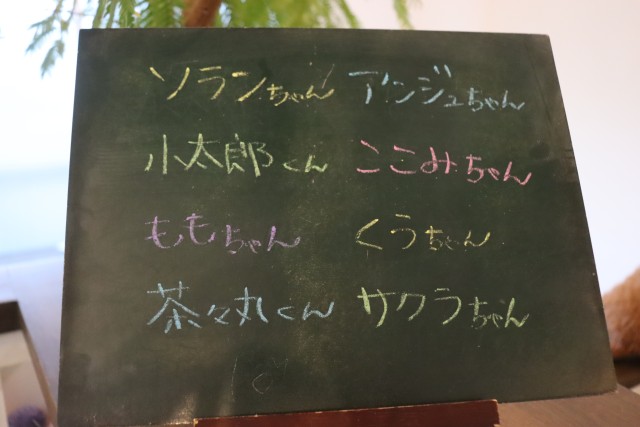 ソランちゃん アンジュちゃん
小太郎くん ここみちゃん
ももちゃん くぅちゃん
茶々丸くん サクラちゃん